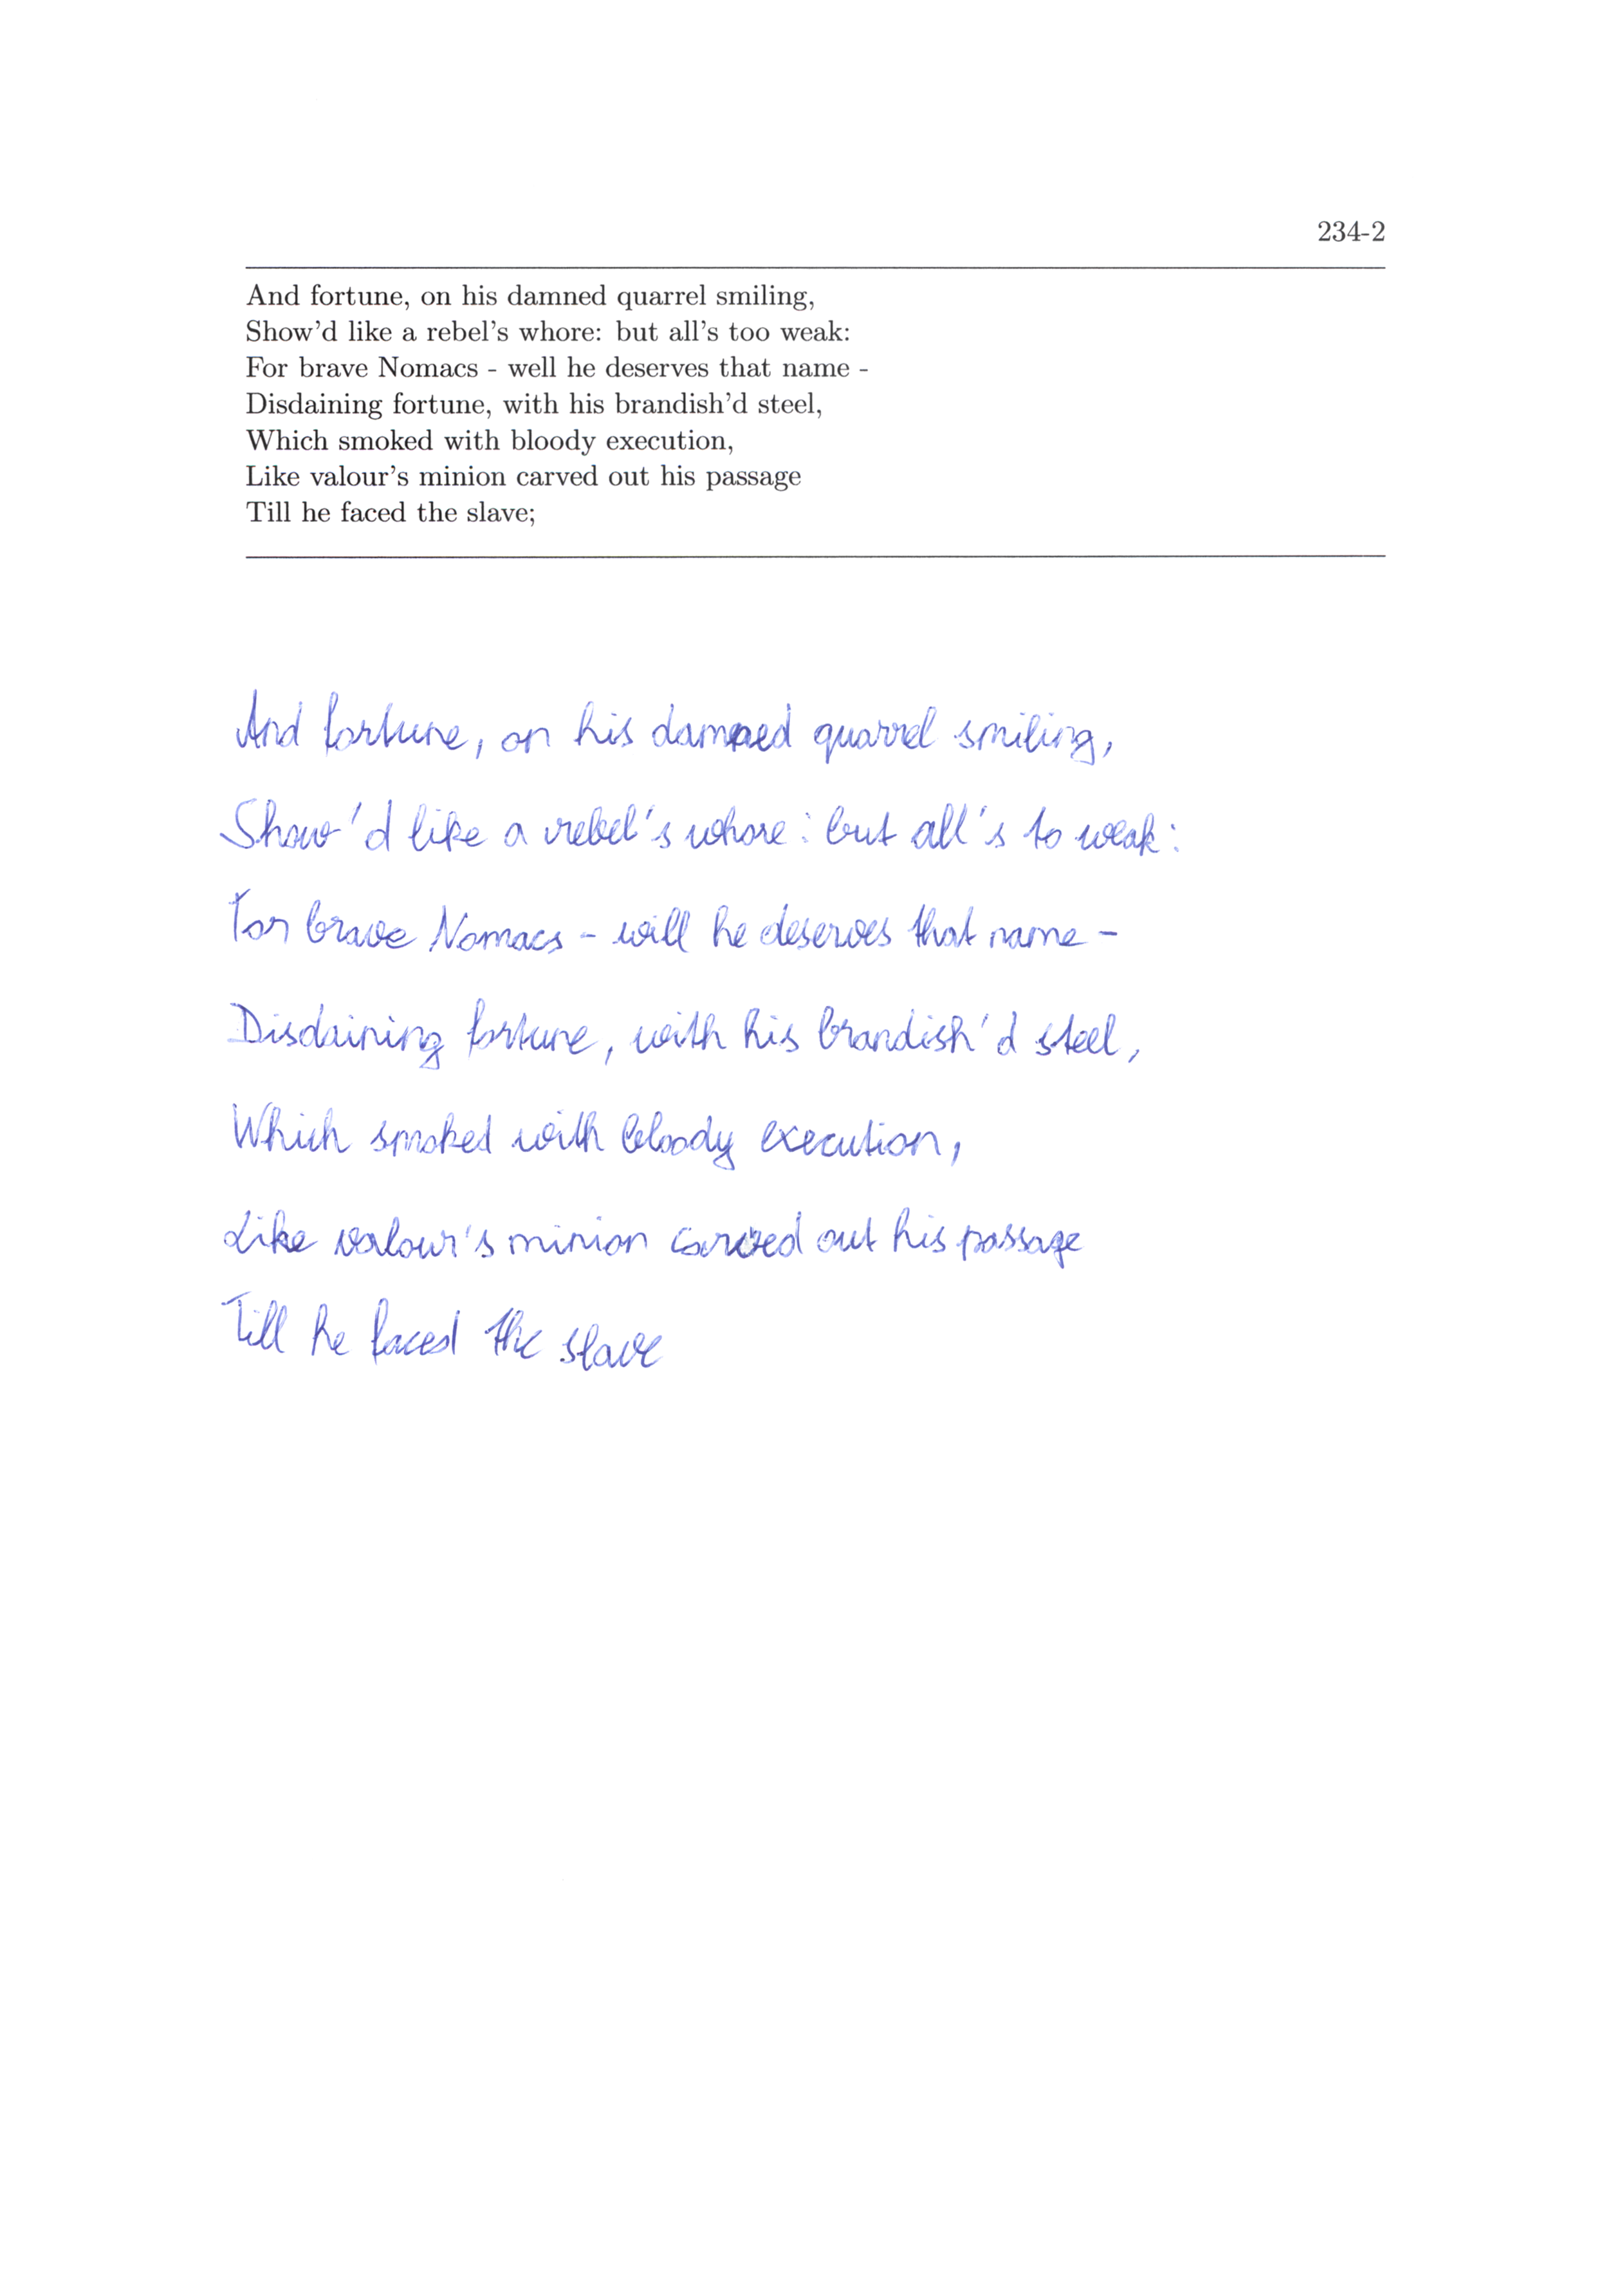 234-2
And fortune, on his damned quarrel smiling,
Show'd like a rebel's whore: but all's too weak:
For brave Nomacs - well he deserves that name -
Disdaining fortune, with his brandish'd steel,
Which smoked with bloody execution,
Like valour's minion carved out his passage
Till he faced the slave;
And fortune, on his damned quarrel smiling,
Show'd like a rebel's whore: but all's to weak:
For brave Nomacs - will he deserves that name -
Disdaining fortune, with his brandish'd steel,
Which smoked with bloody execution,
Like valour's minion carved out his passage
Till he faced the slave